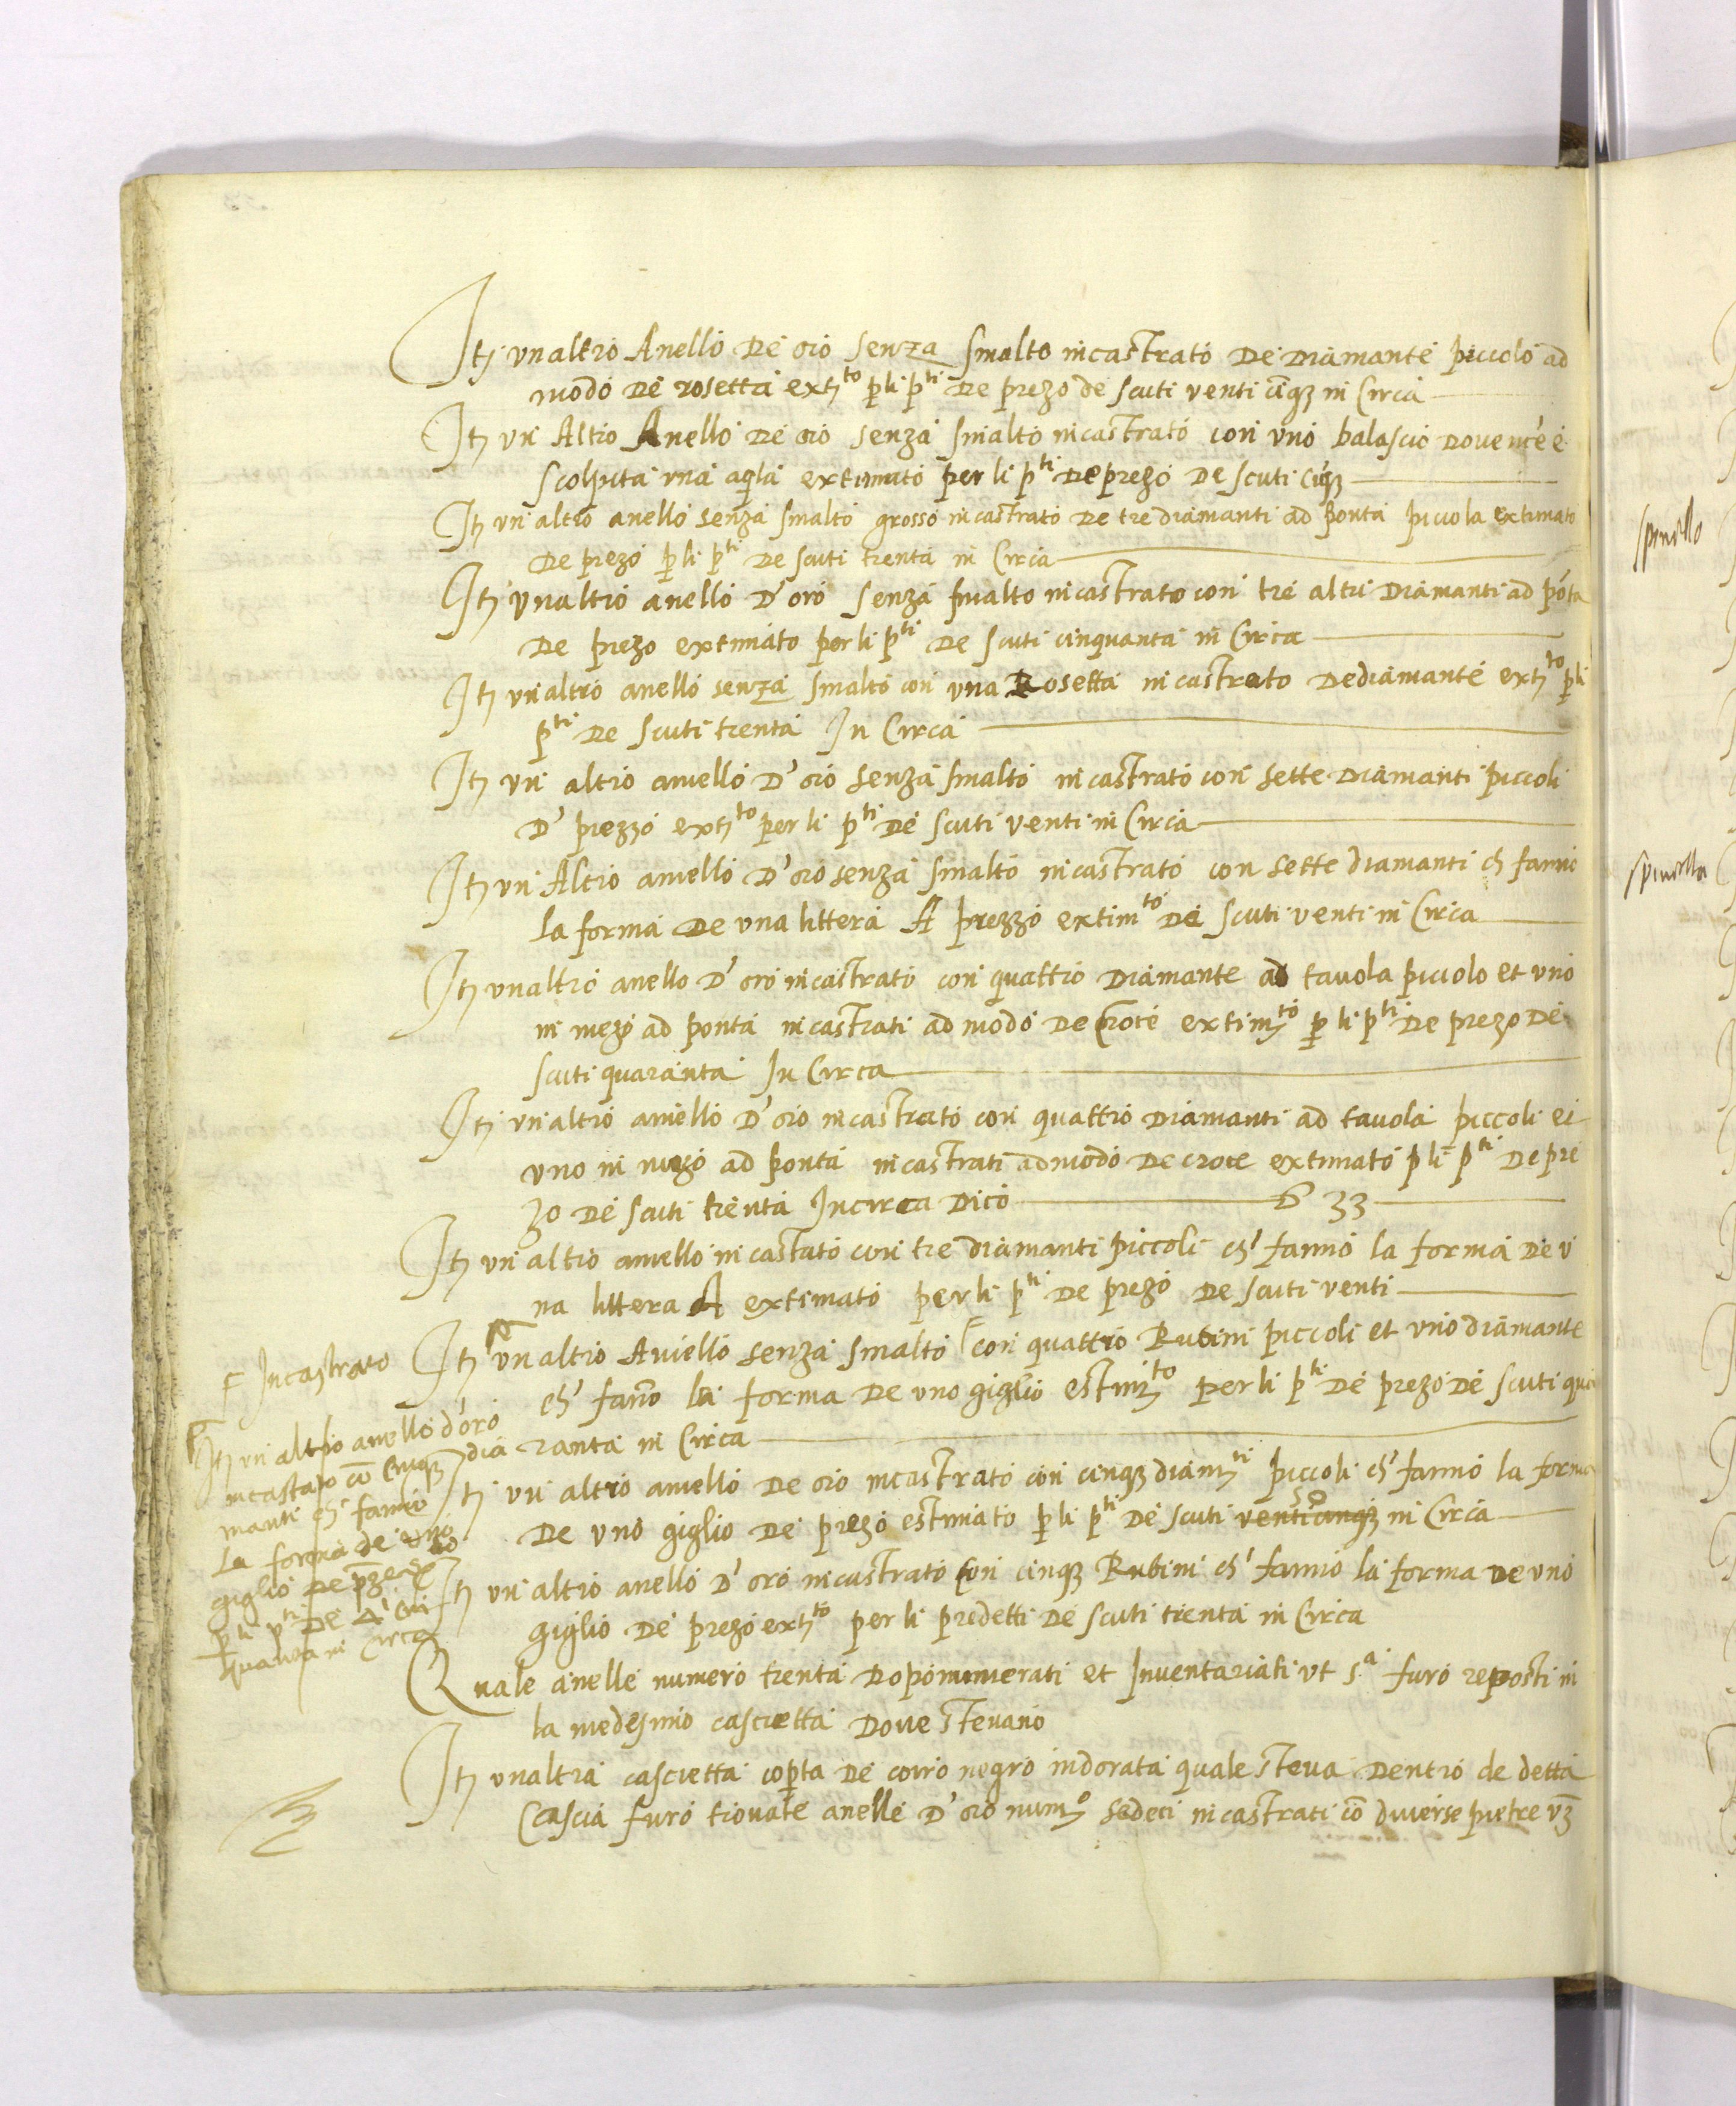 Itj unaltro Anello De oro senza smalto incastrato De Diamante piccolo ad
modo De rosetta extj.to p li p.ti De prezo de scuti venti cinqȝ in Circa
Itȝ un Altro Anello De oro senza smalto incastrato con uno balascio Dove nce e
scolpita una aqla extimato per li p.ti De prezo De scuti ciqȝ
Itȝ un altro anello senza smalto grosso incastrato De tre diamanti ad ponta piccola extimato
De prezo p li p.ti De scuti trenta in Circa
Itȝ unaltro anello D' oro senza smalto incastrato con tre altri Diamanti ad pōta
De prezo extimato per li p.ti De scuti cinquanta in Circa
Itȝ un altro anello senza smalto con una Rosetta incastrato De diamante extj.to p li
p.ti De scuti trenta In Circa
Itȝ un altro aniello D' oro senza smalto incastrato con sette Diamanti piccoli
D' prezzo extj.to per li p.ti De scuti venti in Circa
Itȝ un Altro aniello D' oro senza smalto incastrato con sette diamanti ch fanno
la forma De una littera A prezzo extim.to De scuti venti in Circa
Itȝ unaltro anello D' oro incastrato con quattro Diamante ad tavola piccolo et uno
in mezo ad ponta incastrati ad modo De croce extim.to p li p.ti De prezo De
scuti quaranta In Circa
Itȝ un altro aniello D' oro incastrato con quattro Diamanti ad tavola piccoli et
uno in mezo ad ponta incastrati ad modo De croce extimato p li p.ti De pre
zo De scuti trenta Incirca Dico 33
Itȝ un altro aniello incastato con tre diamanti piccoli ch' fanno la forma De u
na littera A extimato per li p.ti De prezo De scuti venti
Itȝ unaltro Aniello senza smalto con quattro Rubini piccoli et uno diamante
ch' fano la forma De uno giglio estim.to per li p.ti De prezo De scuti qua
ranta in Circa
Itȝ un altro aniello De oro incastrato con cinqȝ diam.ti piccoli ch' fanno la forma
De uno giglio De prezo estimato p li p.ti De scuti venticinqȝ 50 in Circa
Itȝ un altro anello D' oro incastrato con cinqȝ Rubini ch' fanno la forma De uno
giglio De prezo extj.to per li predetti De scuti trenta in Circa
Quale anelle numero trenta Dopo numerati et Inventariati ut s.a furo reposti in
la medesmo cascietta Dove stevano
Itȝ unaltra cascietta copta De coiro negro indorata quale steva Dentro de detta
Cascia furo trovate anelle D' oro num.o sedeci incastrati cō diverse pietre vȝ
Incastrato
Itȝ un altro anello d'oro
incastato cō cinqȝ dia
manti ch' fanno
la forma de uno
giglio De
p li p.ti De
quanta in Circa
spinello
spinella